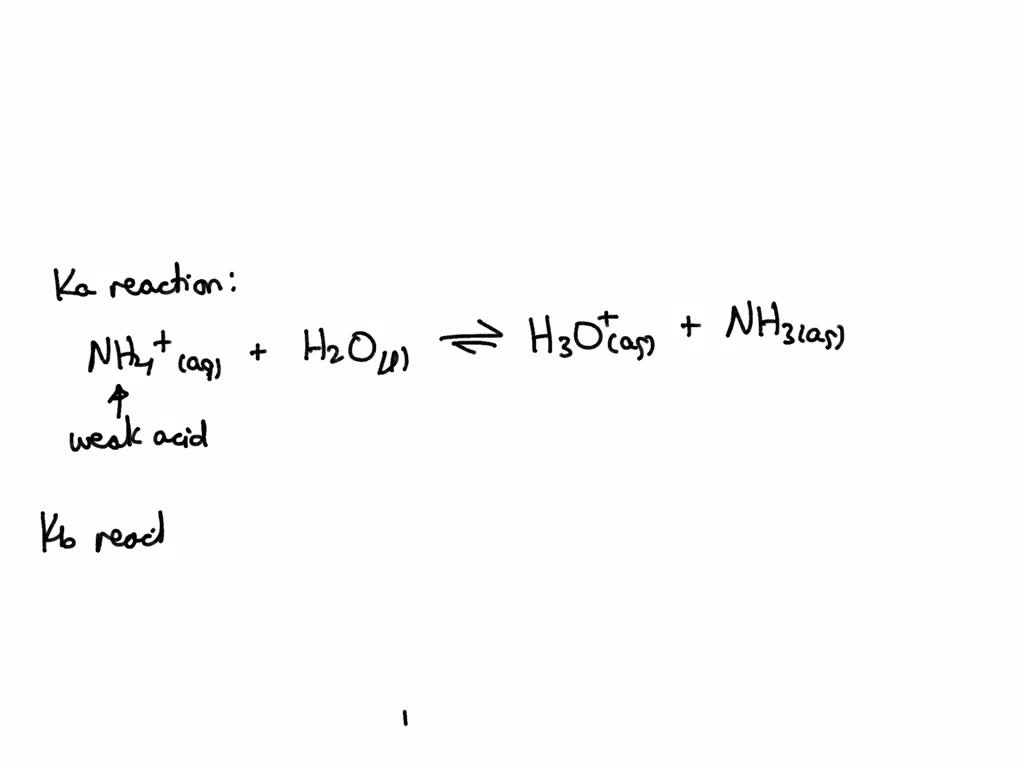 Ka reaction:
NH4+(aq) + H2O(l) ⇌ H3O+(aq) + NH3(aq)
↑
weak acid
Kb react